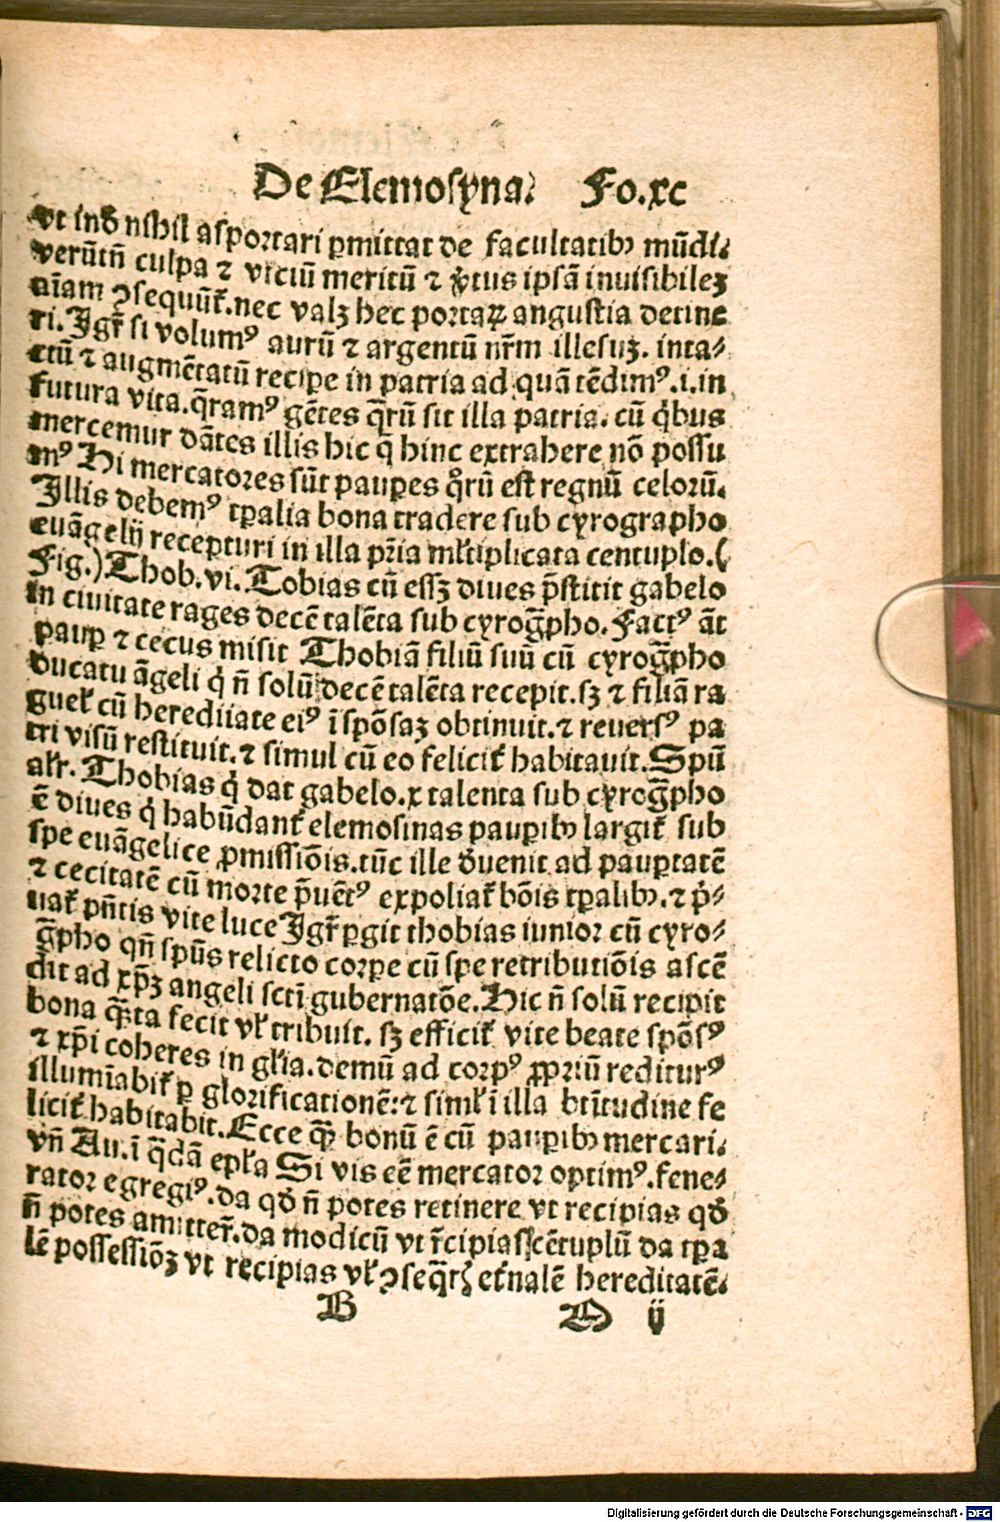 De Elemosyna. Fo.xc
vt inđ nihil asportari ꝑmittat de facultatibꝰ mūdi.
verūtñ culpa ⁊ viciū meritū ⁊ v̓tus ipsā inuisibileꝫ
aīam ꝯsequūt̄.nec valꝫ hec portaꝝ angustia detine
ri.Jgr̄ si volumꝰ aurū ⁊ argentū nr̄m illesuꝫ. inta⸗
ctū ⁊ augmētatū recipe in patria ad quā tēdimꝰ.i.in
futura vita.q̄ramꝰ gētes q̄rū sit illa patria. cū q̇bus
mercemur dātes illis hic q̄ hinc extrahere nō possu
mꝰ Hi mercatores sūt pauꝑes qͦrū est regnū celorū.
Jllis debemꝰ tꝑalia bona tradere sub cyrographo
euāgelij recepturi in illa pr̄ia ml̄tiplicata centuplo.(
Fig.)Thob.vi.Tobias cū essꝫ diues p̄stitit gabelo
in ciuitate rages decē talēta sub cyrog̃pho.Factꝰ āt
pauꝑ ⁊ cecus misit Thobiā filiū suū cū cyrog̃pho
ducatu āgeli q̇ ñ solū decē talēta recepit.sꝫ ⁊ filiā ra
guel̄ cū hereditate eiꝰ ī spōsaꝫ obtinuit.⁊ reuersꝰ pa
tri visū restituit.⁊ simul cū eo felicit̄ habitauit.Spū
alr̄.Thobias q̇ dat gabelo.x talenta sub cyrog̃pho
ē diues q̇ habūdant̄ elemosinas pauꝑibꝰ largit̄ sub
spe euāgelice ꝓmissiōis.tūc ille đuenit ad pauꝑtatē
⁊ cecitatē cū morte p̄uētꝰ expoliat̄ bōis tꝑalibꝰ.⁊ ṗ⸗
uat̄ pñtis vite luce Jgr̄ ꝑgit thobias iunior cū cyro⸗
g̃pho qñ spūs relicto corpe cū spe retributiōis ascē
dit ad xp̄ꝫ angeli sctī gubernatōe.Hic ñ solū recipit
bona q̄ꝫta fecit vl̄ tribuit. sꝫ efficit̄ vite beate spōsꝰ
⁊ xp̄i coheres in gl̄ia.demū ad corpꝰ ꝓpriū rediturꝰ
illumīabit̄ ꝑ glorificationē:⁊ siml̄ ī illa btītudine fe
licit̄ habitabit.Ecce q̄ꝫ bonū ē cū pauꝑibꝰ mercari.
vñ Au.ī q̄dā epl̄a Si vis eē mercator optimꝰ.fene⸗
rator egregiꝰ.da qđ ñ potes retinere vt recipias qđ
ñ potes amitter̄.da modicū vt r̄cipias cētuplū da tꝑa
lē possessiōꝫ vt recipias vl̄ ꝯseq̄rꝭ et̄nalē hereditatē.
B M ij
Digitalisierung gefördert durch die Deutsche Forschungsgemeinschaft - DFG